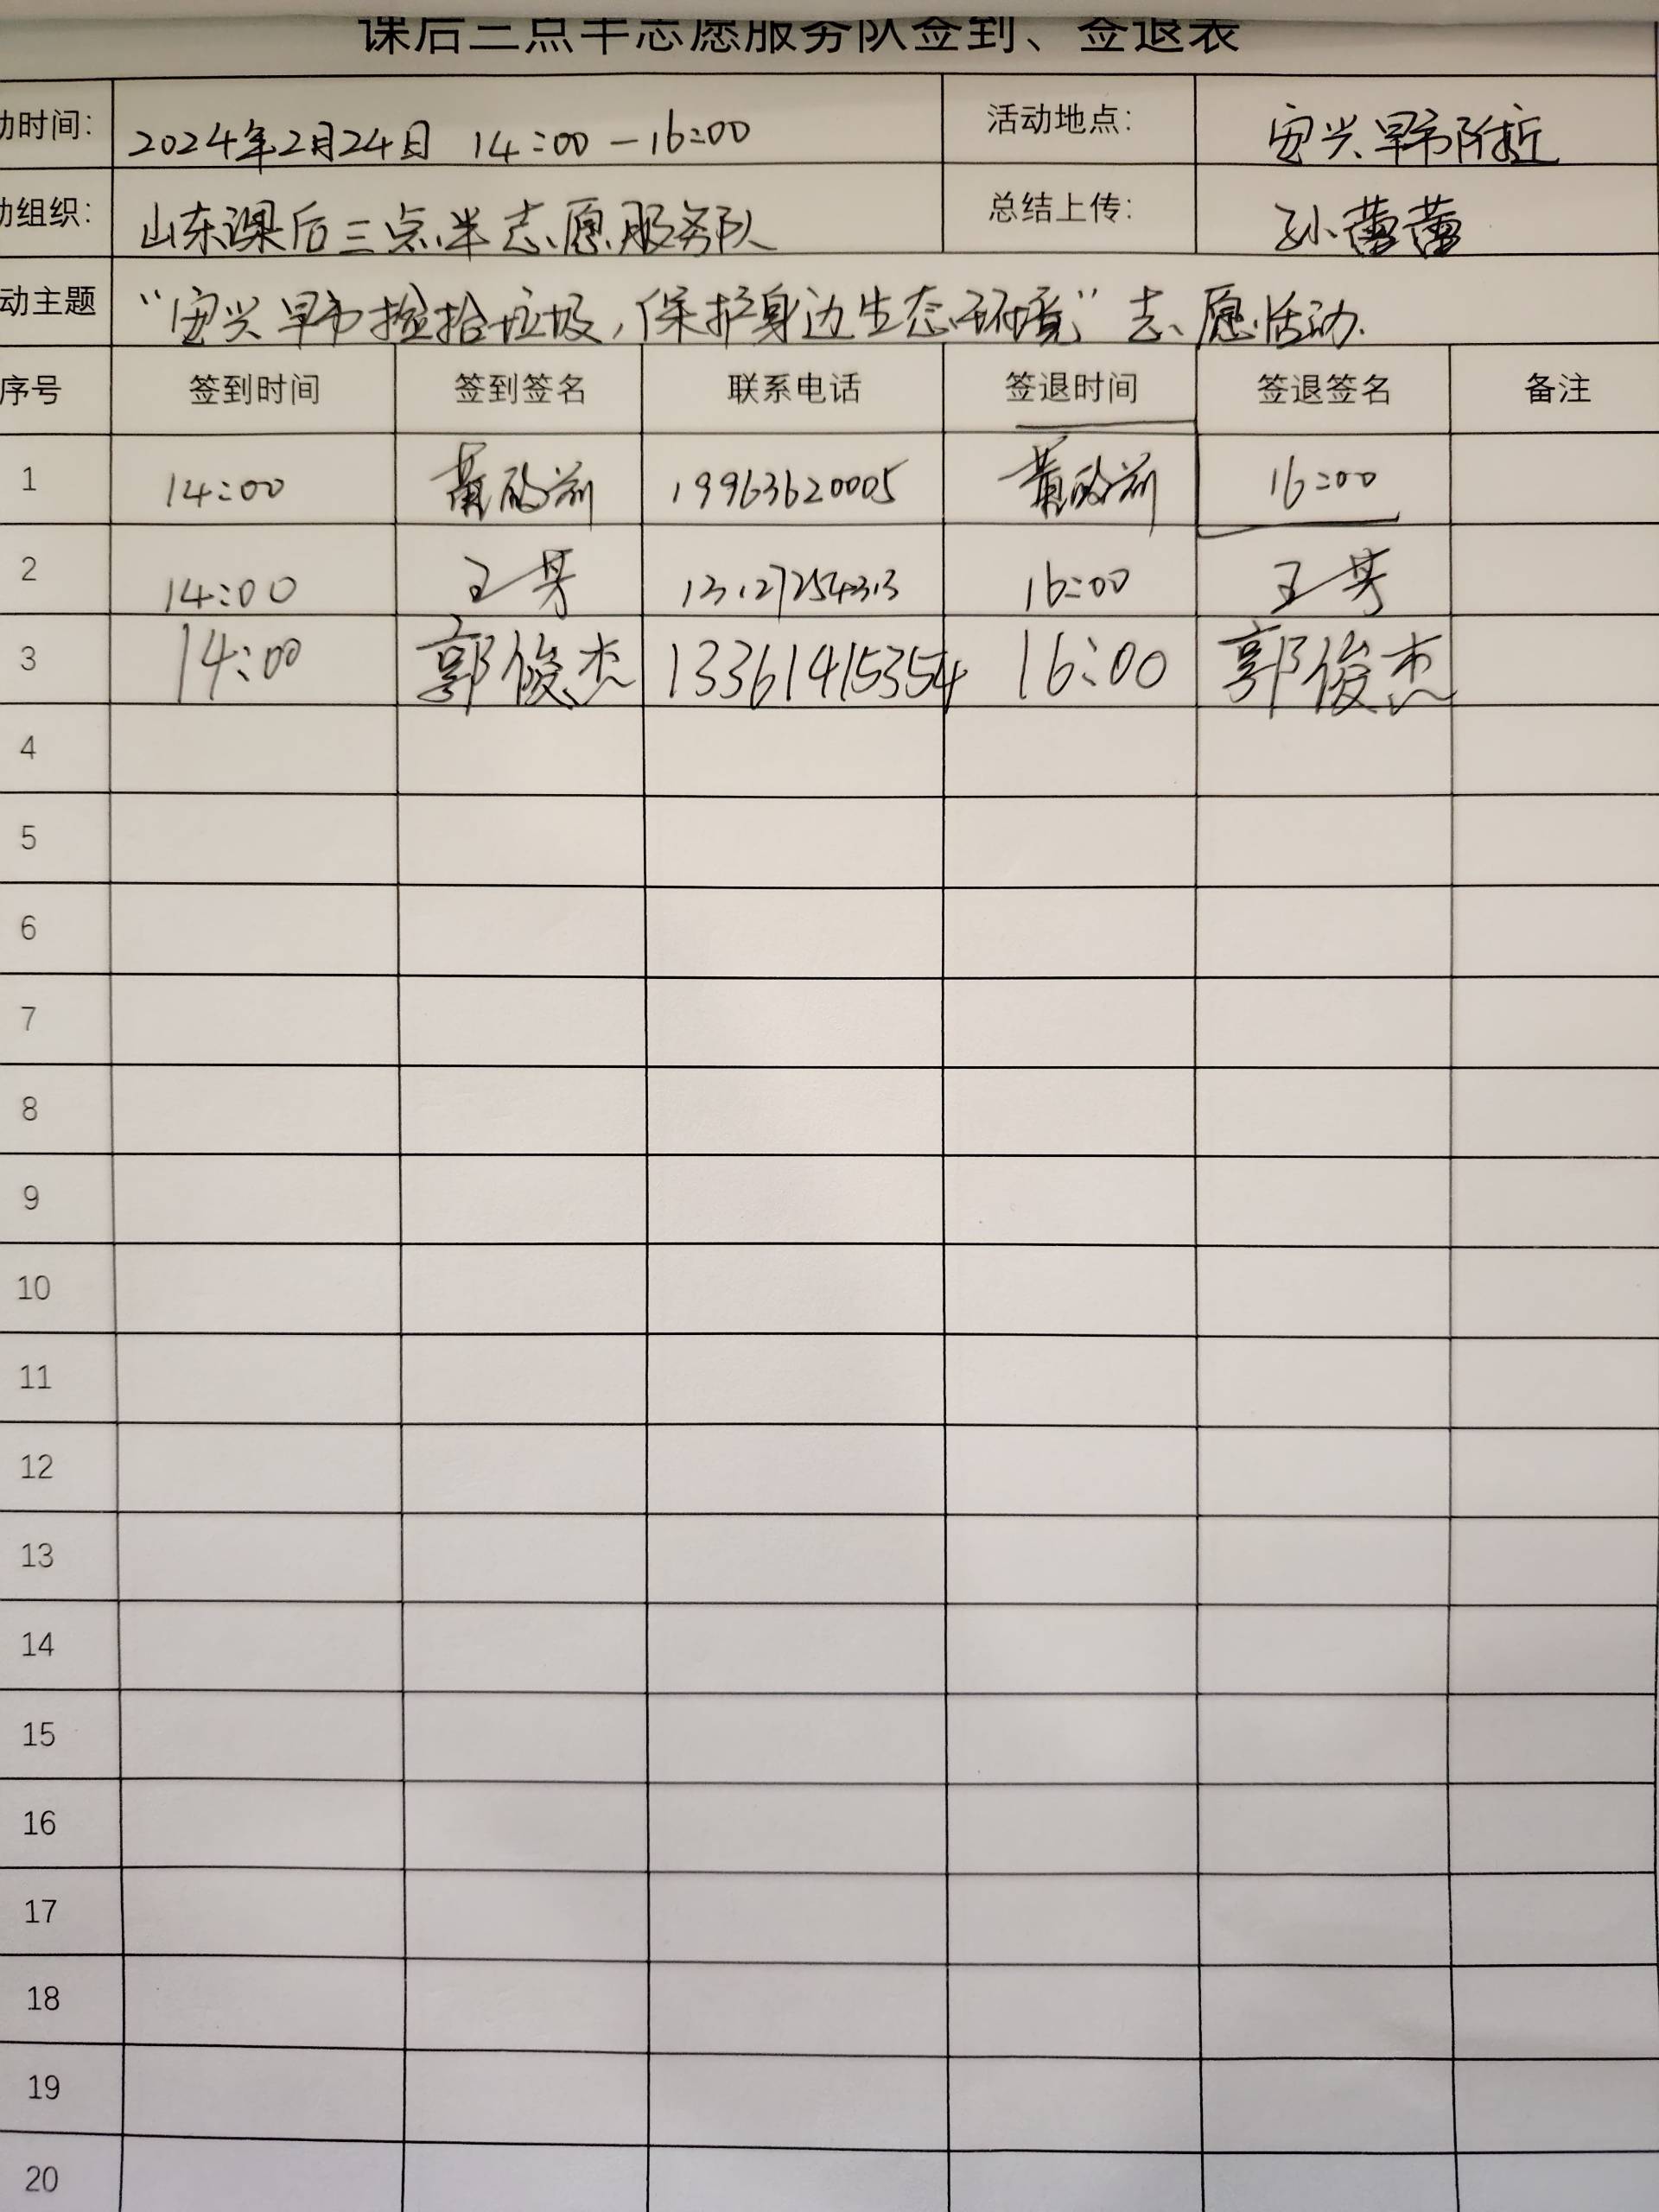 课后三点半志愿服务队签到、签退表
动时间: 2024年2月24日 14:00-16:00 活动地点: 安兴早市附近
动组织: 山东课后三点半志愿服务队 总结上传: 孙蕾蕾
动主题 "安兴早市捡拾垃圾,保护身边生态环境"志愿活动.
序号 签到时间 签到签名 联系电话 签退时间 签退签名 备注
1 14:00 19963620005 16:00
2 14:00 16:00
3 14:00 郭俊杰 13361415354 16:00 郭俊杰
4
5
6
7
8
9
10
11
12
13
14
15
16
17
18
19
20